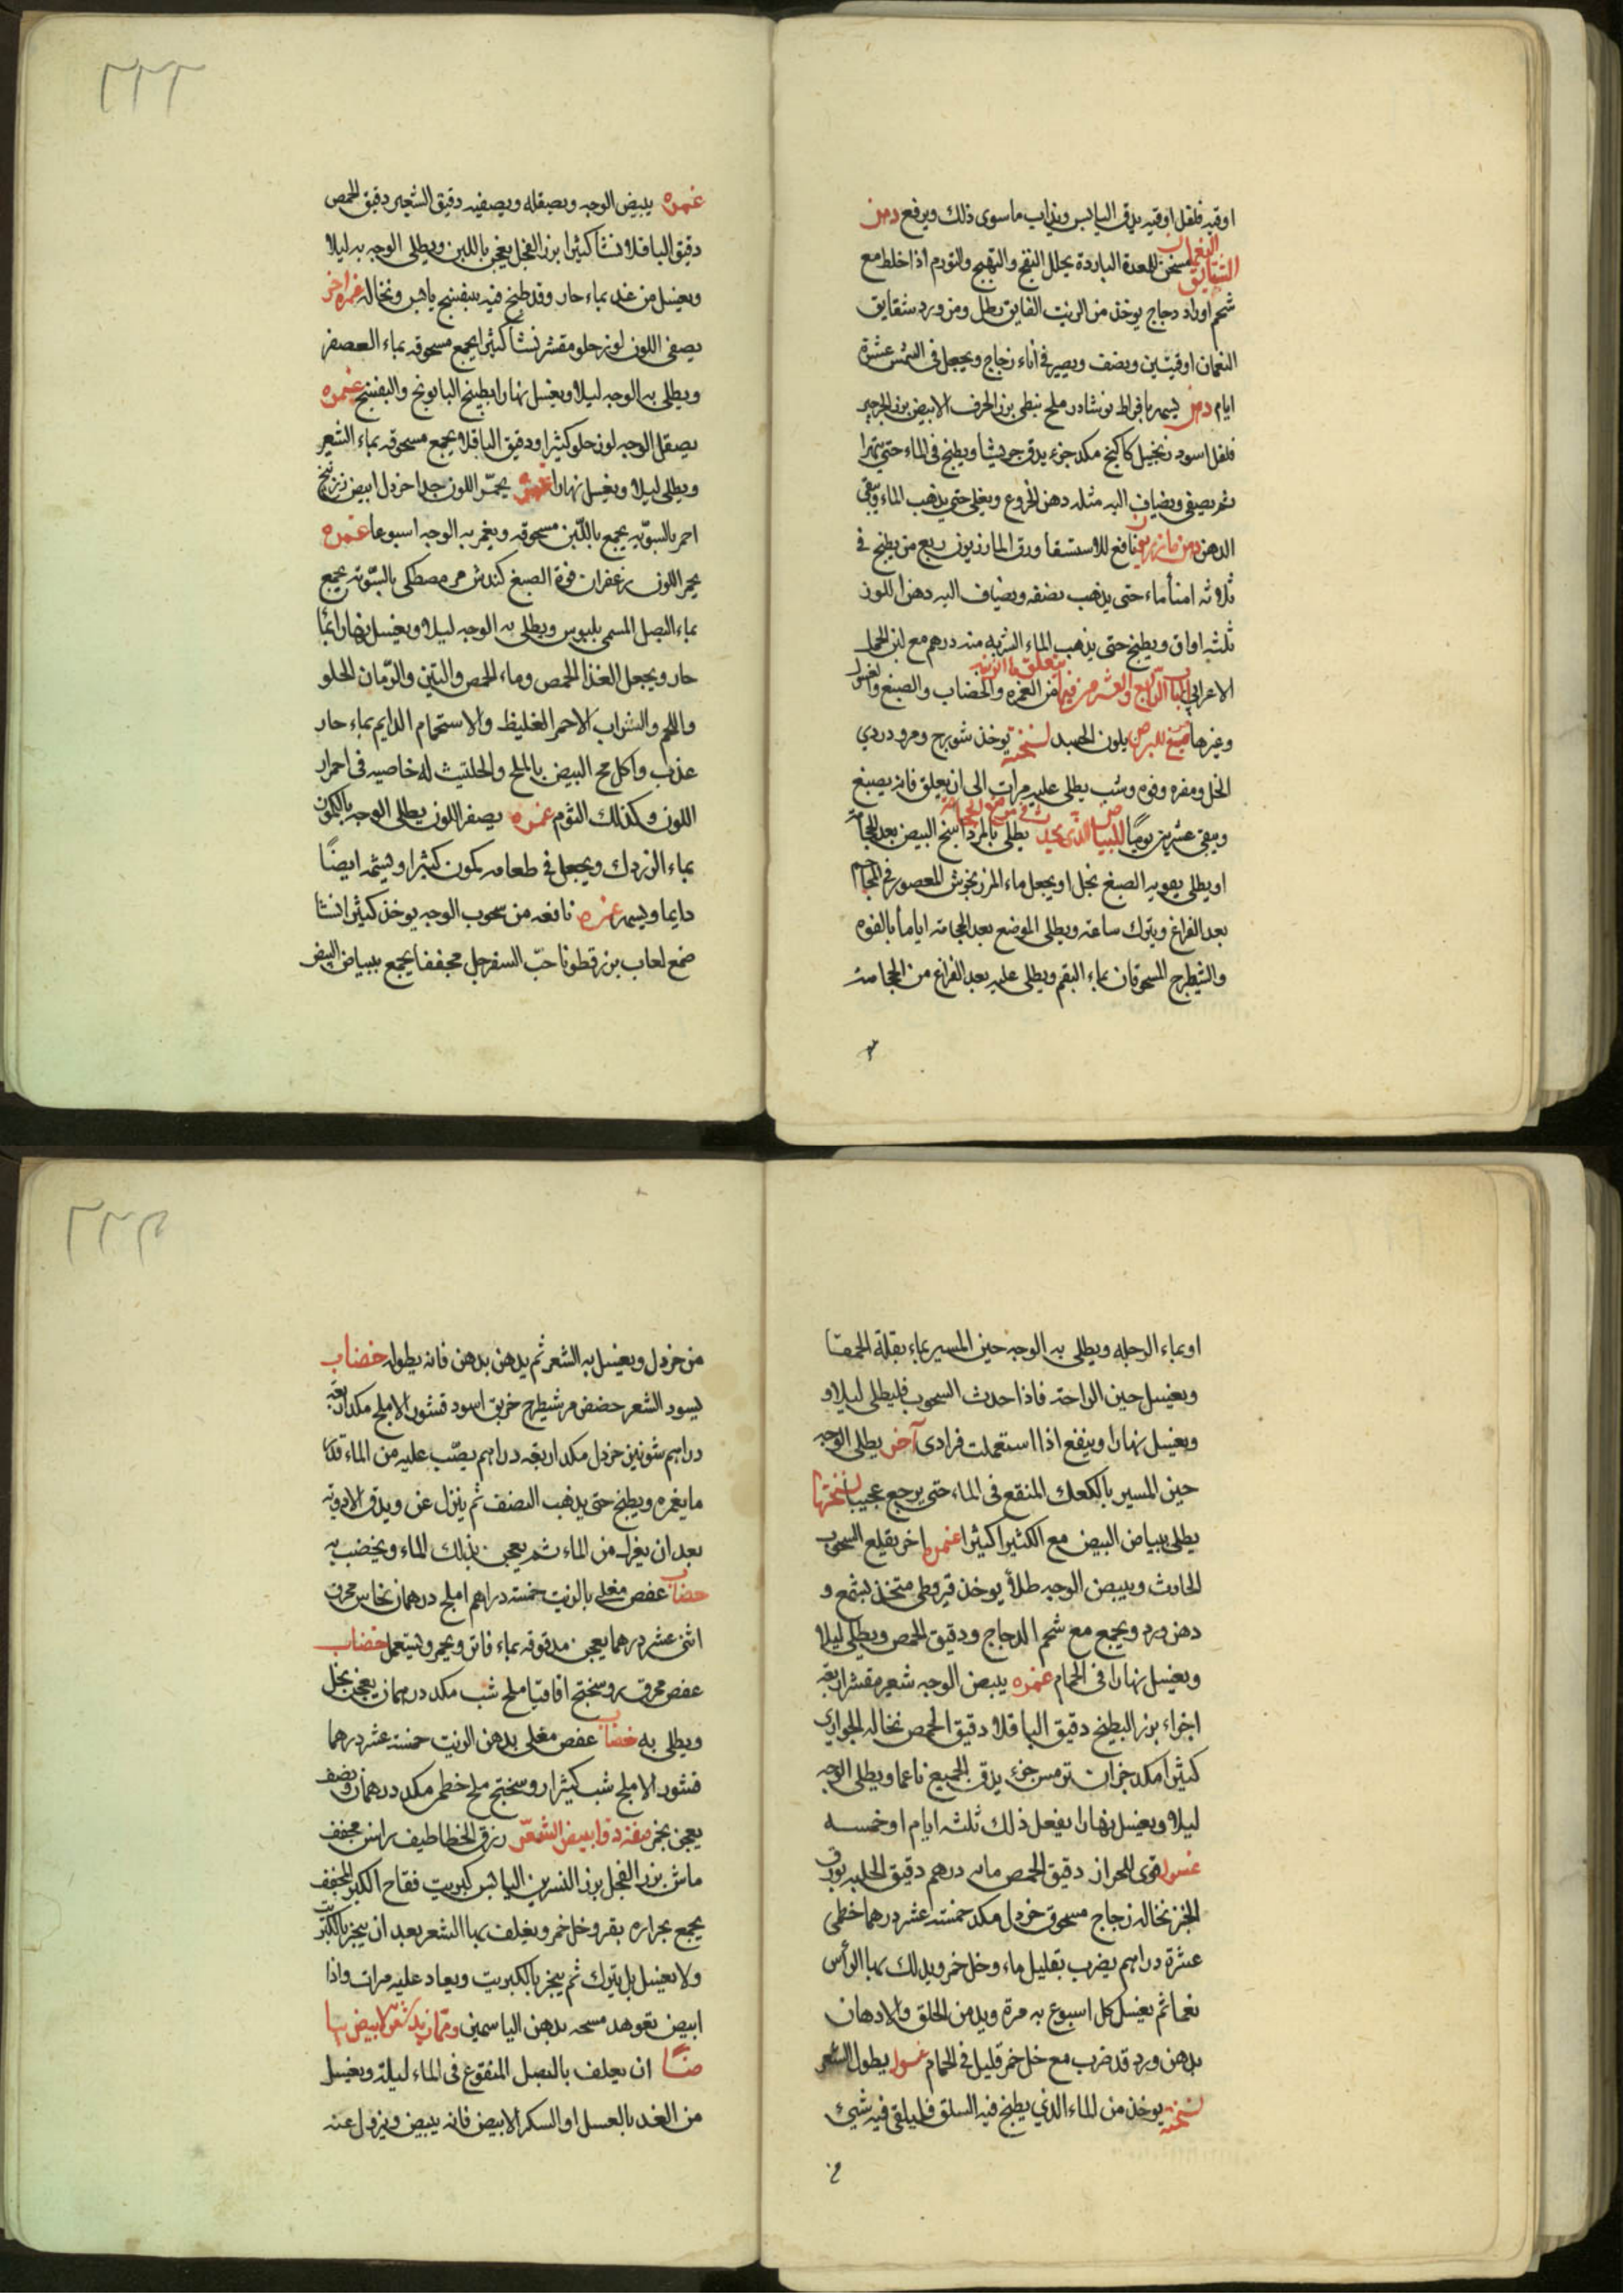 اوقيه فلفل اوقيه يدق اليابس ويذاب ما سوى ذلك ويرفع دهن
الشقايق النعمان مسخن للمعدة الباردة يحلل النفخ والتهيج والتورم اذا خلط مع
شحم او راد دجاج يوخذ من الزيت الفايق رطل ومن ورد شقايق
النعمان اوقيتين ونصف ويصير في اناء زجاج ويجعل في الشمس عشرة
ايام دهن يسمر بافراط نوشادر ملح نبطى بزر الحرف الابيض بزر الجرجير
فلفل اسود زنجبيل كاكنج مكد جزء يدق جريشا ويطبخ في الماء حتى يتهرا
ثم يصفى ويضاف اليه مثله دهن الخروع ويغلى حتى يذهب الماء ويبقى
الدهن دهن مازريون نافع للاستسقا ورق المازريون ربع من يطبخ في
ثلاثه امنا ماء حتى يذهب نصفه ويضاف اليه دهن اللوز
ثلثه اواق ويطبخ حتى يذهب الماء الشربه منه درهم مع لبن
الاعرابى الباب الرابع والعشرون فيما يتعلق بالزينه من الغمره والخضاب والصبغ والغسول
وغيرها صبغ للبرص بلون الجسد نسخته يوخذ شونيز ومر ودردي
الخل ومغره وفوه وشب يطلى عليه مرات الى ان يعلق فانه يصبغ
ويبقى عشرين يوما للبياض الذى يحدث في موضع الحجامة يطلى بالمرداسنج المبيض بعد الحجامة
او يطلى بفويه الصبغ بخل او يجعل ماء المرزنجوش المعصور في المحاجم
بعد الفراغ ويترك ساعة ويطلى الموضع بعد الحجامة اياما بالفوه
والشيطرج المسحوقان بماء البقم ويطلى عليه بعد الفراغ من الحجامة
٢٢٢
غمره يبيض الوجه ويصقله ويصفيه دقيق الشعير دقيق الحمص
دقيق الباقلا نشا كثيرا بزر الفجل يعجن باللبن ويطلى الوجه به ليلا
ويغسل من غد بماء حار وقد طبخ فيه بنفسج يابس ونخاله غمره اخر
يصفى اللون لوز حلو مقشر نشا كثيرا يجمع مسحوقه بماء العصفر
ويطلى به الوجه ليلا ويغسل نهارا بطبيخ البابونج والبنفسج غمره
يصقل الوجه لوز حلو كثيرا ودقيق الباقلا يجمع مسحوقه بماء الشعير
ويطلى ليلا ويغسل نهارا غمره يحمّر اللون جدا خردل ابيض زرنيخ
احمر بالسويّه يجمع باللّبن مسحوقه ويغمر به الوجه اسبوعا غمره
يحمر اللون زعفران فوة الصبغ كندش مر مصطكى بالسّويّه يجمع
بماء البصل المسمى بلبوس ويطلى به الوجه ليلا ويغسل نهارا بماء
حار ويجعل الغذا الحمص وماء الحمص والتين والرّمان الحلو
واللحم والشراب الاحمر الغليظ والاستحمام الدايم بماء حار
عذب واكل مح البيض بالملح والحلتيث له خاصيه في احمرار
اللون وكذلك الثوم غمره يصفر اللون يطلى الوجه بالكمون
بماء الزردك ويجعل في طعامه كمون كثيرا ويشمّه ايضًا
دايما ويسهر غمره نافعه من سحوب الوجه يوخذ كثيرا نشا
صمغ لعاب بزر قطونا حبّ السفرجل مجففا يجمع ببياض البيض
او بماء الرجله ويطلى به الوجه حين المسير بماء بقلة الحمقا
ويغسل حين الراحة فاذا حدث السحوب فليطلى ليلا و
ويغسل نهارا وينفع اذا استعملت فرادى آخر يطلى الوجه
حين المسير بالكعك المنقع في الماء حتى يرجع عجينا نسختها
يطلى ببياض البيض مع الكثيرا كثيرا غمره اخر يقلع السحوب
الحادث ويبيض الوجه طلأ يوخذ قيروطى متخذ بشمع و
دهن ورد ويجمع مع شحم الدجاج ودقيق الحمص ويطلى ليلا
ويغسل نهارا في الحمام غمره يبيض الوجه شعير مقشر اربعة
اجزاء بزر البطيخ دقيق الباقلا دقيق الحمص نخاله الجواري
كثيرا مكد جزان ترمس جزء يدق الجميع ناعما ويطلى الوجه
ليلا ويغسل نهارا يفعل ذلك ثلثه ايام او خمسه
غسول قوى للحزاز دقيق الحمص مايه درهم دقيق الحلبه بورق
الخبز نخاله زجاج مسحوق خردل مكد خمسة عشر درهما خطمى
عشرة دراهم يضرب بقليل ماء وخل خمر ويدلك بها الرأس
نعما ثم يغسل كل اسبوع به مرة ويدمن الحلق والادهان
بدهن ورد قد ضرب مع خل خمر قليل في الحمام غسول يطول الشعر
نسخته يوخذ من الماء الذي يطبخ فيه السلق فليلقى فيه شيئ
من
٢٢٣
من خردل ويغسل به الشعر ثم يدهن بدهن فانه يطوله خضاب
يسود الشعر حضض مر شيطرج خربق اسود قشور الاملج مكد اربعة
دراهم شونيز خردل مكد اربعة دراهم يصّب عليه من الماء قدر
ما يغمره ويطبخ حتى يذهب النصف ثم ينزل عن ويدق الادوية
بعد ان يغزل من الماء ثم يعجن بذلك الماء ويخضب به
خضاب عفص مغلى بالزيت خمسة دراهم املج درهمان نحاس محرق
اثنى عشر درهما يعجن مدقوقه بماء فاتر ويخمر ويستعمل خضاب
عفص محرق روسختج اقاقيا ملح شب مكد درهمان يعجن بخل
ويطلى به خضاب عفص مغلى بدهن الزيت خمسة عشر درهما
قشور الاملج شب كثيرا روسختج ملح خطمى مكد درهمان ونصف
يعجن بخمر صفة دوا يبيض الشعر زرق الخطاطيف براش مجفف
ماش بزر الفجل بزر النسرين اليابس كبريت فقاح الكبر المجفف
يجمع بمراره بقر وخل خمر ويغلف بها الشعر بعد ان يبخر بالكبريت
ولا يغسل بل يترك ثم يبخر بالكبريت ويعاد عليه مرات واذا
ابيض تعوهد مسحه بدهن الياسمين ومما يزيد شعر الابيض بيا
ضًا ان يعلف بالبصل المنقوع في الماء ليلة ويغسل
من الغد بالعسل او السكر الابيض فانه يبيض ويزول عنه